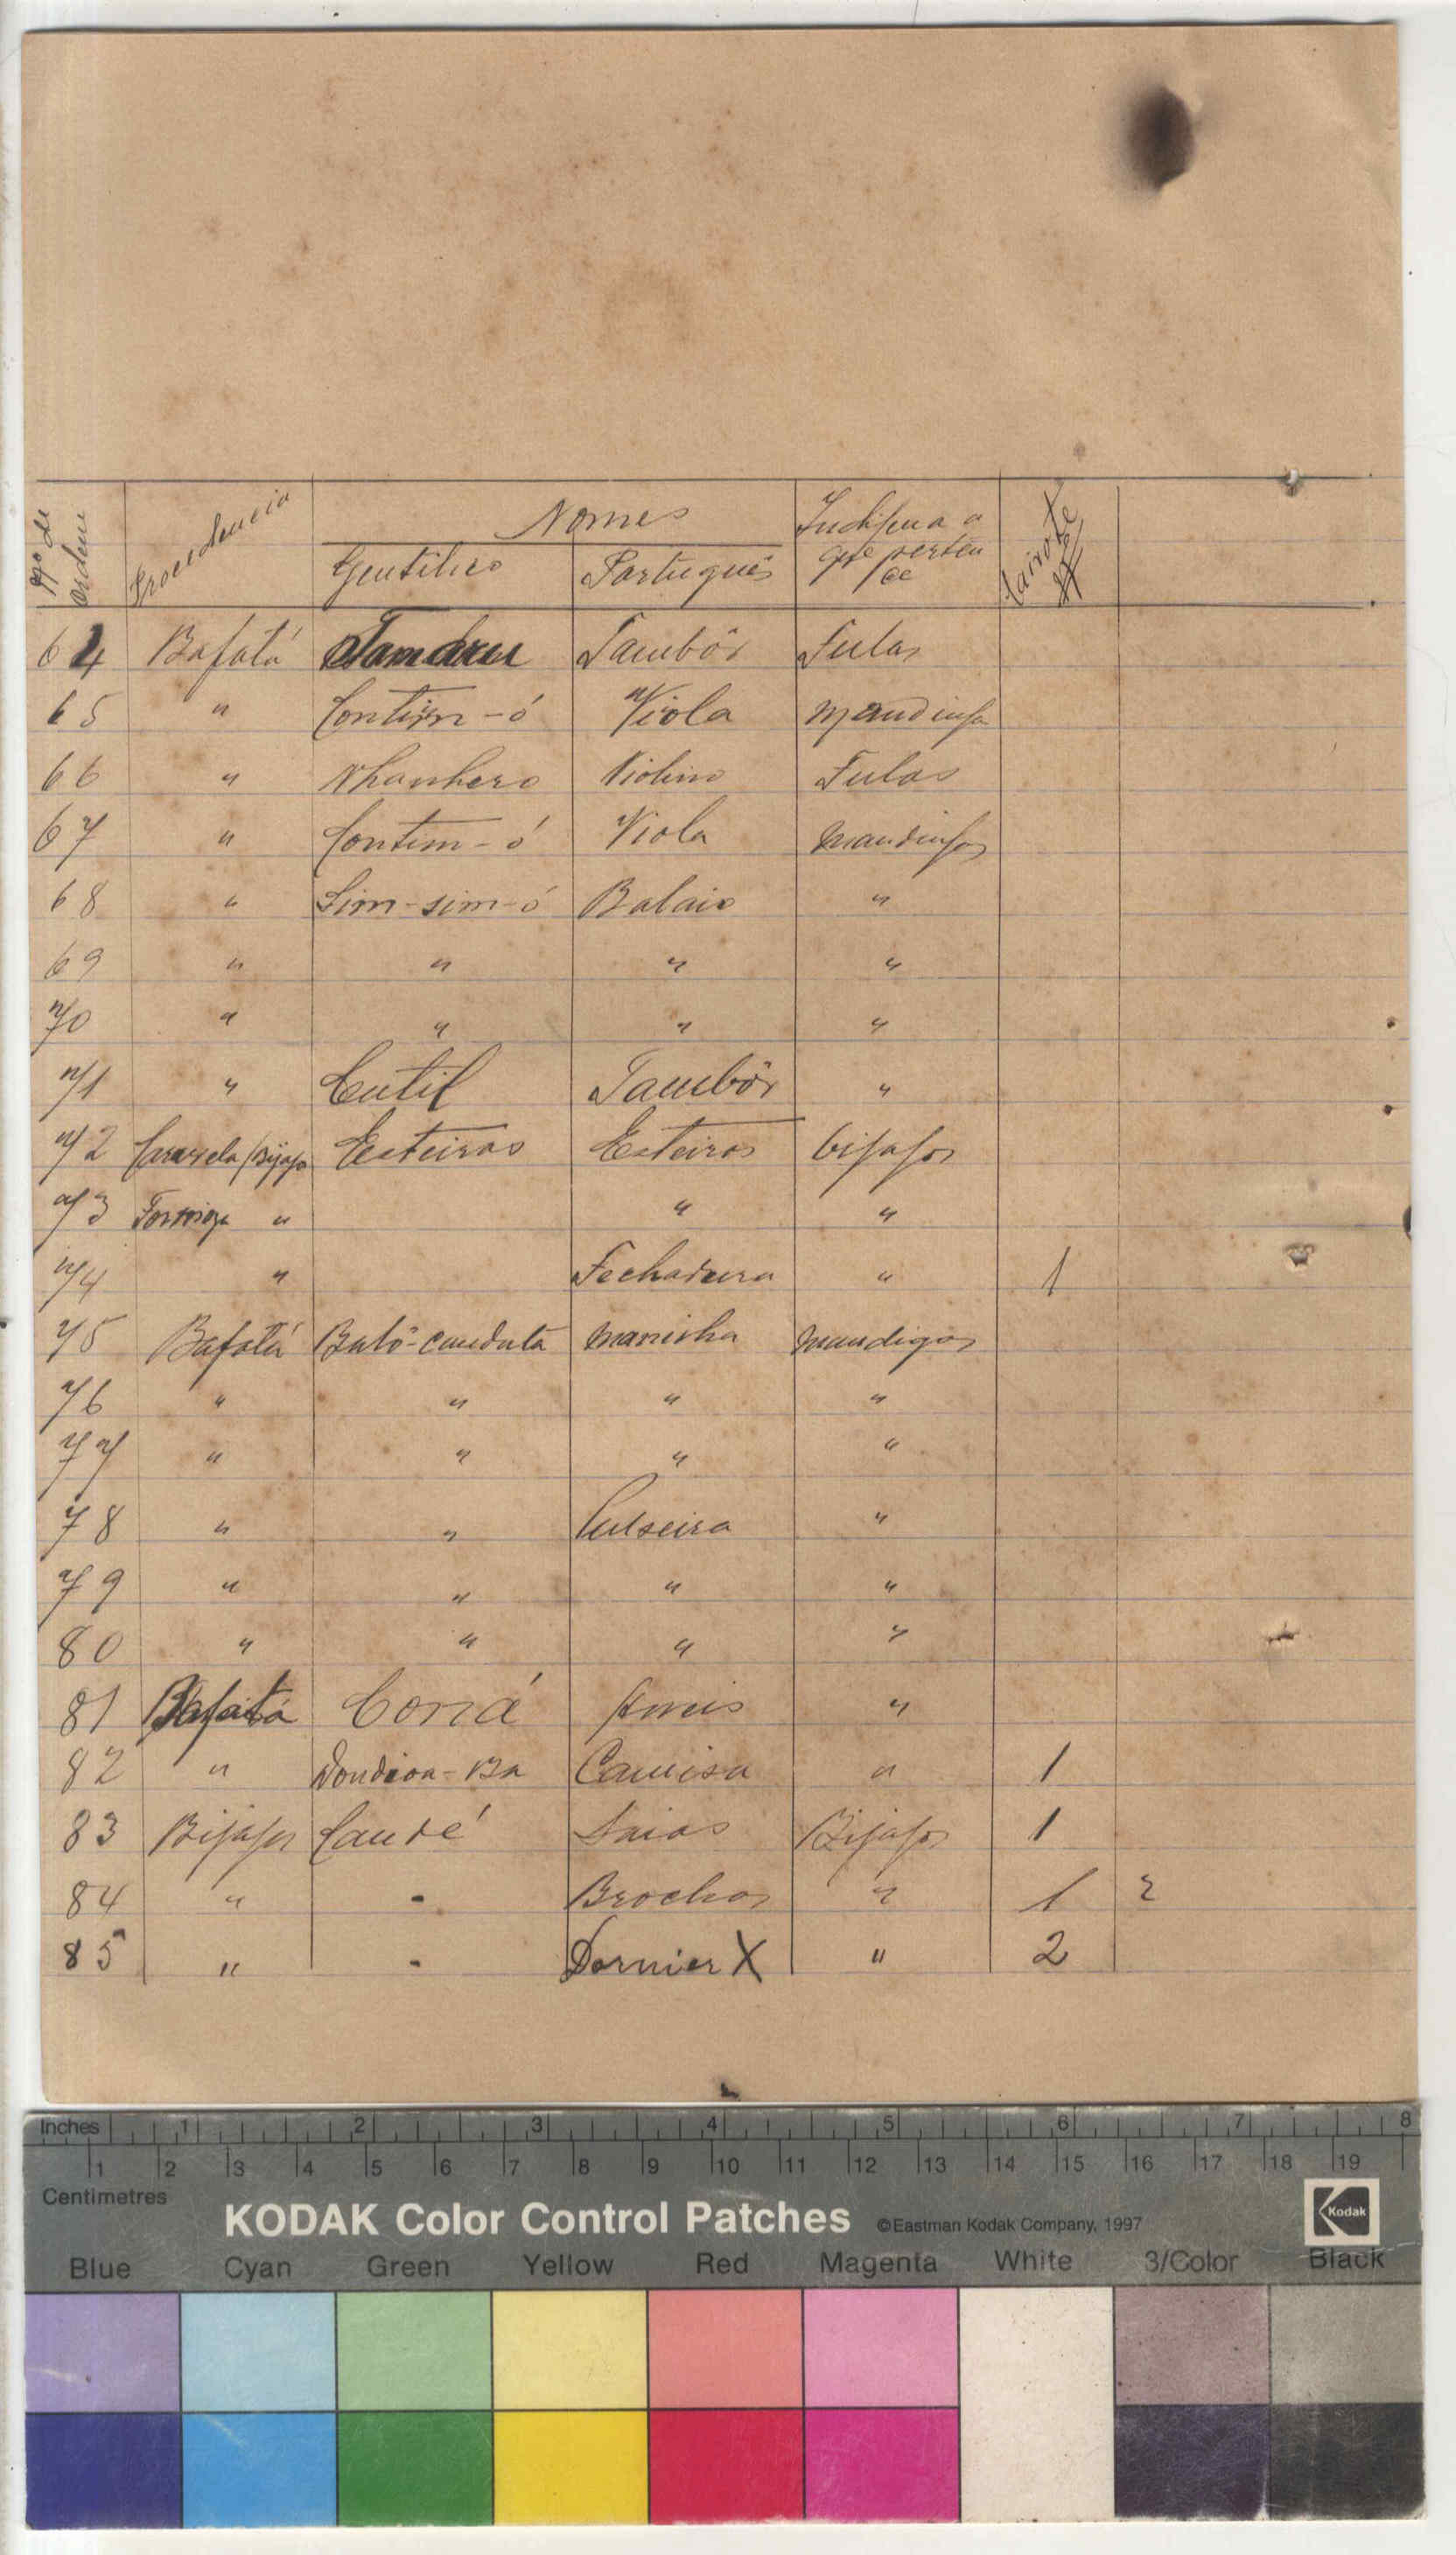 Nº de ordem Procedencia Nomes Indígena a que perten ce
Gentilico Português
64 Bafatá Tambôr Fulas
65 " Contim-ó Viola Mandinga
66 " Nhanhero Violino Fulas
67 " Contim-ó Viola Mandingas
68 " Sim-sim-ó Balaio "
69 " " " "
70 " " " "
71 " Cutil Tambôr "
72 Caravela/Bijagó Esteiras Esteiras bijagos
73 Formiga " " "
74 " Fechadura " 1
75 Bafatá Buló-caudutá Manilha Mandigas
76 " " " "
77 " " " "
78 " " Pulseira "
79 " " " "
80 " " " "
81 Bafatá Coná Aneis "
82 " Dondioa-Ba Camisa " 1
83 Bijagos Candé Saias Bijagos 1
84 " - Brochas " 1 2
85 " - Dornier X " 2
Inches 1 2 3 4 5 6 7 8
1 2 3 4 5 6 7 8 9 10 11 12 13 14 15 16 17 18 19
Centimetres
KODAK Color Control Patches ©Eastman Kodak Company, 1997 Kodak
Blue Cyan Green Yellow Red Magenta White 3/Color Black